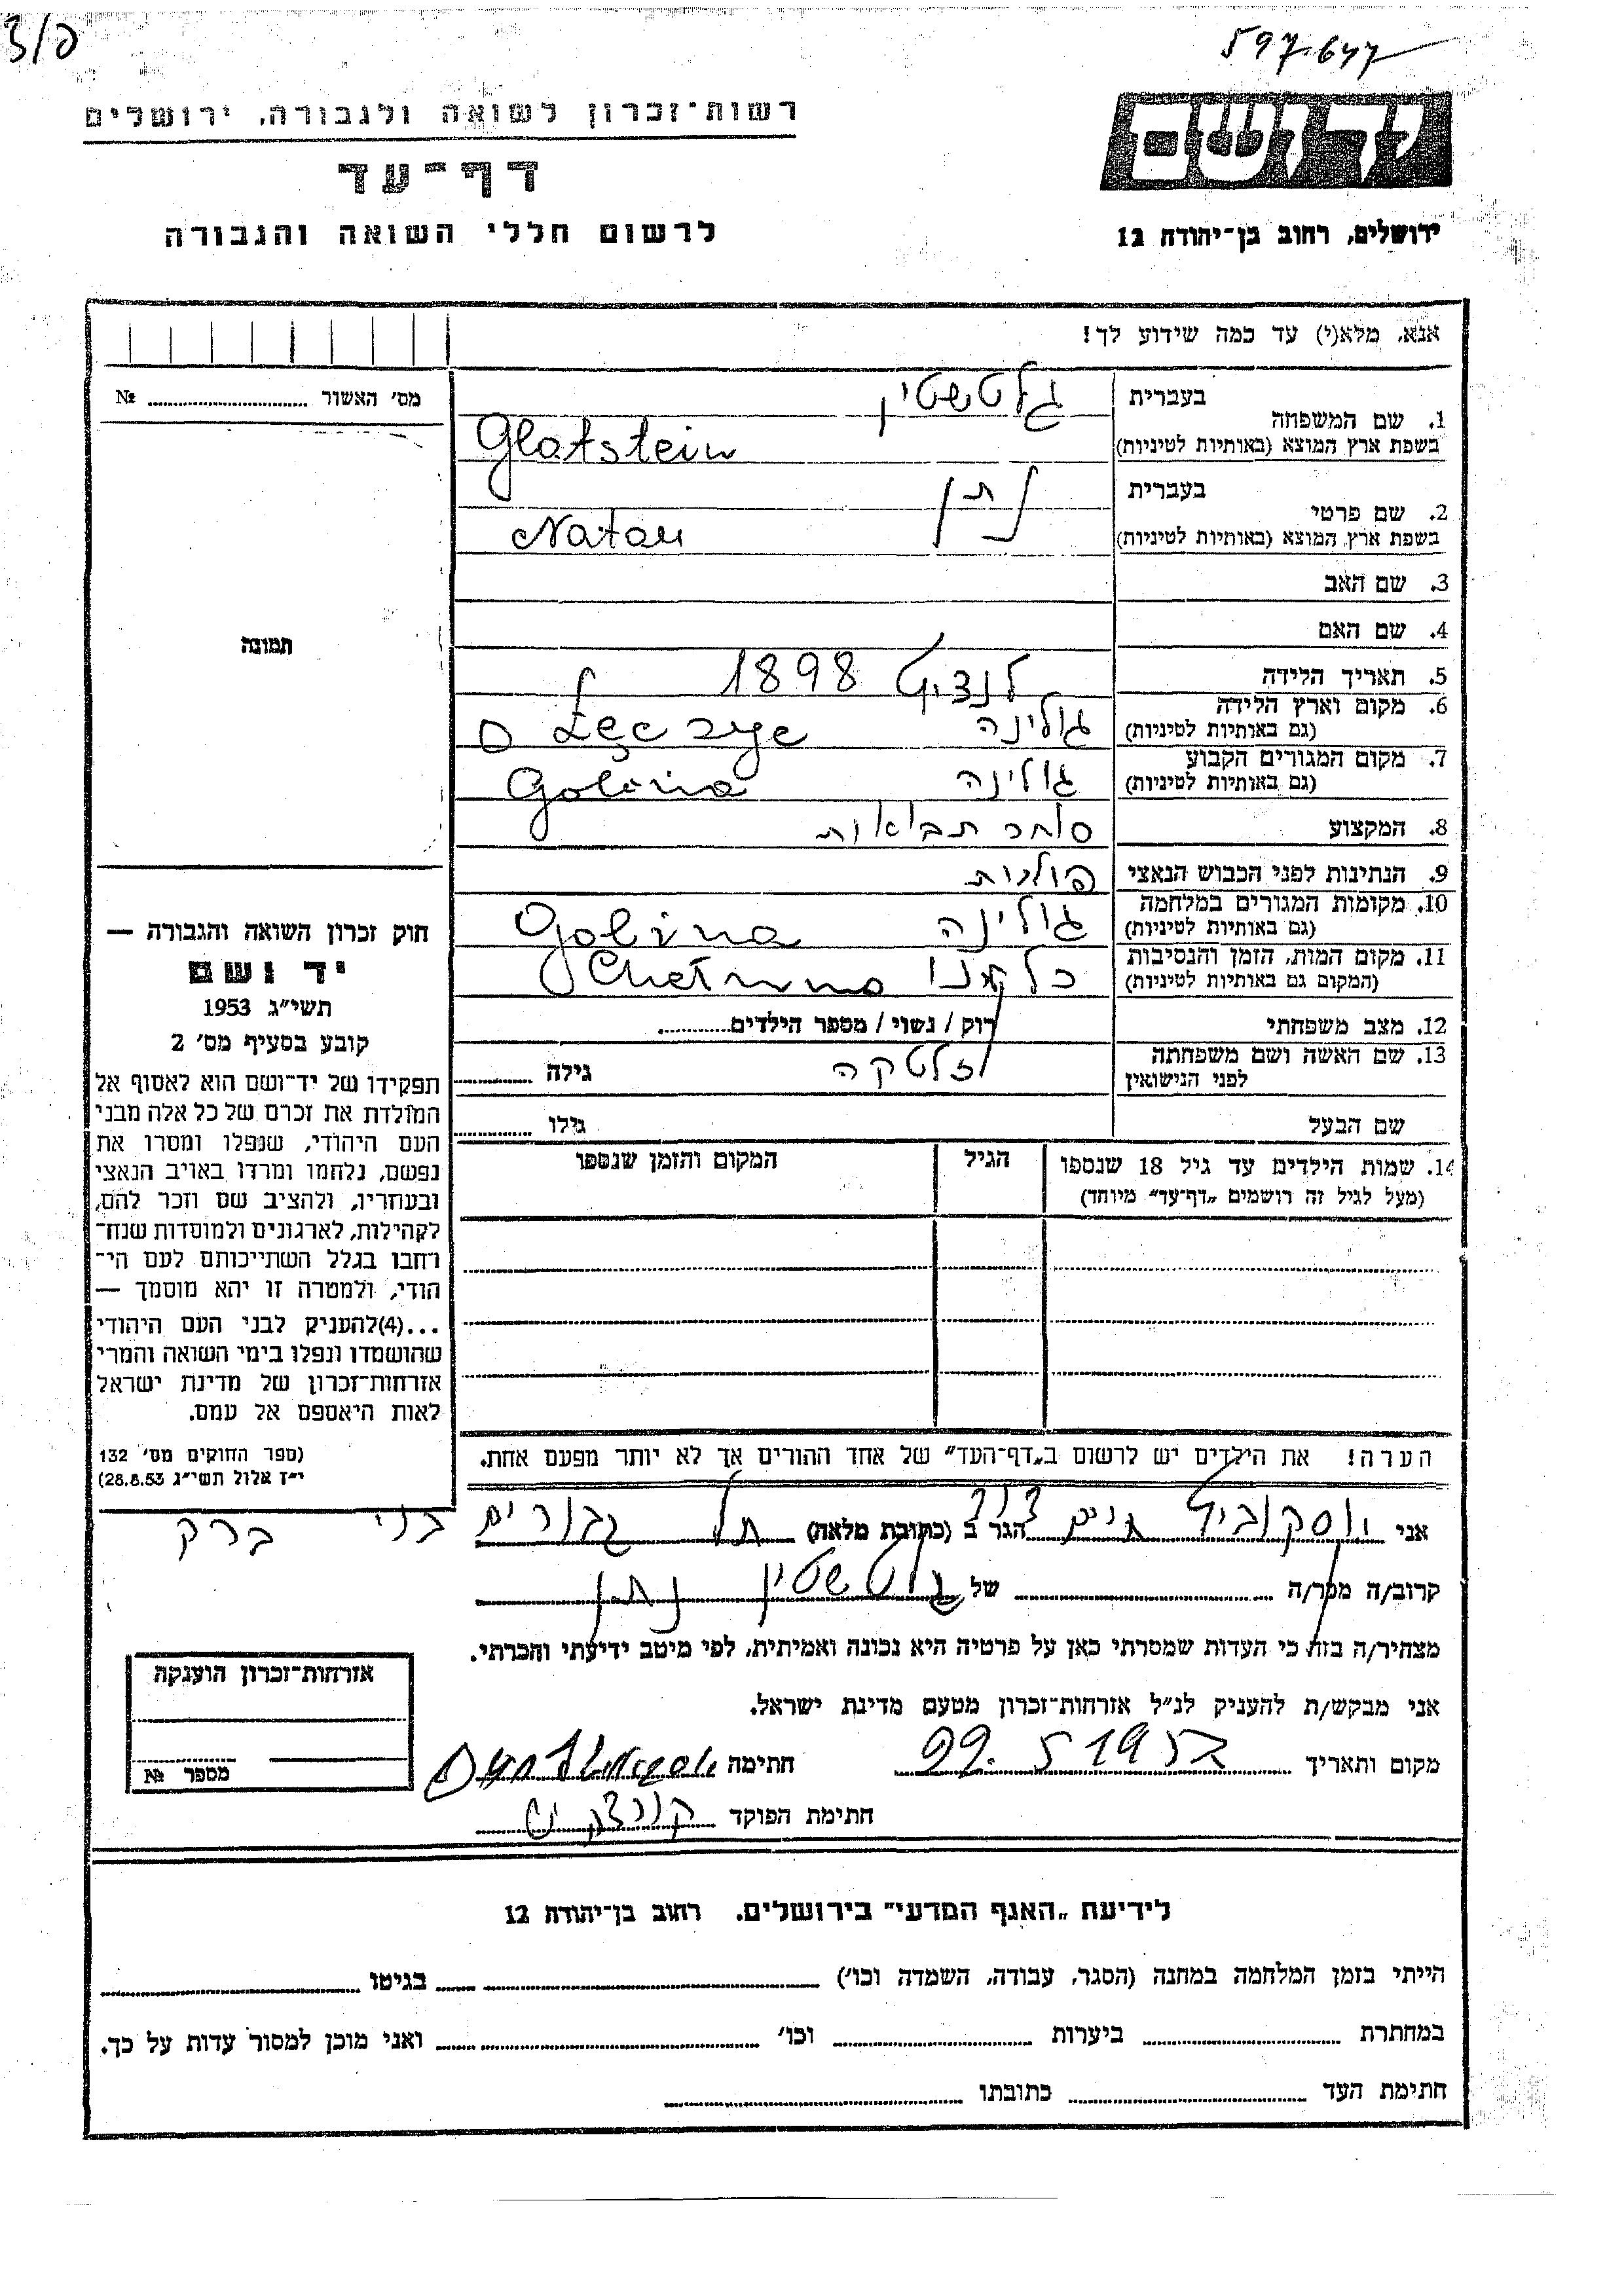 597.677
רשות-זכרון לשואה ולגבורה, ירושלים
דף-עד
לרשום חללי השואה והגבורה
ידושם
ירושלים, רחוב בן-יהודה 12
אנא, מלא(י) עד כמה שידוע לך!
מס׳ האשור № 
1. שם המשפחה בעברית גלטשטין
בשפת ארץ המוצא (באותיות לטיניות) Glatstein
2. שם פרטי בעברית נתן
בשפת ארץ המוצא (באותיות לטיניות) Natan
3. שם האב
4. שם האם
תמונה
5. תאריך הלידה 1898
6. מקום וארץ הלידה גולינה
(גם באותיות לטיניות) Łęczyce
7. מקום המגורים הקבוע גולינה
(גם באותיות לטיניות) Golina
8. המקצוע סוחר תבואות
9. הנתינות לפני הכבוש הנאצי פולנית
10. מקומות המגורים במלחמה גולינה
(גם באותיות לטיניות) Golina
11. מקום המות, הזמן והנסיבות
(המקום גם באותיות לטיניות) Chełmno
12. מצב משפחתי רוק / נשוי / מספר הילדים
13. שם האשה ושם משפחתה לפני הנישואין זלטקה גילה
שם הבעל גילו
14. שמות הילדים עד גיל 18 שנספו
(מעל לגיל זה רושמים „דף-עד״ מיוחד)
הגיל
המקום והזמן שנספו
הערה! את הילדים יש לרשום ב„דף-העד״ של אחד ההורים אך לא יותר מפעם אחת.
חוק זכרון השואה והגבורה —
יד ושם
תשי״ג 1953
קובע בסעיף מס׳ 2
תפקידו של יד-ושם הוא לאסוף אל
המולדת את זכרם של כל אלה מבני
העם היהודי, שנפלו ומסרו את
נפשם, נלחמו ומרדו באויב הנאצי
ובעוזריו, ולהציב שם וזכר להם,
לקהילות, לארגונים ולמוסדות שנח-
רחבו בגלל השתייכותם לעם הי-
הודי, ולמטרה זו יהא מוסמך —
...(4)להעניק לבני העם היהודי
שהושמדו ונפלו בימי השואה והמרי
אזרחות-זכרון של מדינת ישראל
לאות היאספם אל עמם.
(ספר החוקים מס׳ 132
י״ז אלול תשי״ג 28.8.53)
אני חיים הגר ב (כתובת מלאה) תל גבורים בני ברק
קרוב/ה מכר/ה של גלטשטין נתן
מצהיר/ה בזה כי העדות שמסרתי כאן על פרטיה היא נכונה ואמיתית, לפי מיטב ידיעתי והכרתי.
אני מבקש/ת להעניק לנ״ל אזרחות-זכרון מטעם מדינת ישראל.
מקום ותאריך חתימה
חתימת הפוקד
אזרחות-זכרון הוענקה
מספר №
לידיעת „האגף המדעי״ בירושלים. רחוב בן-יהודה 12
הייתי בזמן המלחמה במחנה (הסגר, עבודה, השמדה וכו׳) בגיטו
במחתרת ביערות וכו׳ ואני מוכן למסור עדות על כך.
חתימת העד כתובתו